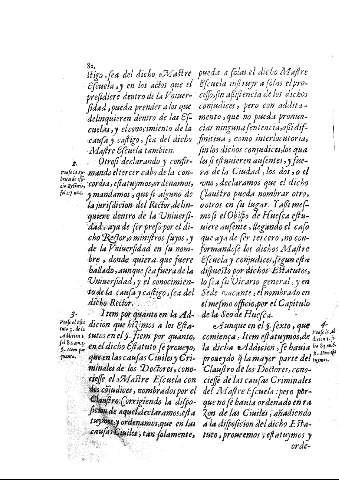 82.
stigo, sea del dicho Maestre
Escuela, y en los actos que el
presidiere dentro de la Vniuer-
sidad, pueda prender a los que
delinquieren dentro de las Es-
cuelas, y el conocimiento de la
causa y castigo, sea del dicho
Maestre Escuela tambien.
2.
Otrosi declarando y confir-
mando el tercer cabo de la con-
cordia, estatuymos, ordenamos,
y mandamos, que si alguno de
la jurisdicion del Rector, delin-
quiere dentro de la Vniuersi-
dad, aya de ser preso por el di-
cho Rector, o ministros suyos, y
de la Vniuersidad en su nom-
bre, donde quiera que fuere
hallado, aunque sea fuera de la
Vniuersidad, y el conocimien-
to de la causa y castigo, sea del
dicho Rector.
3.
Item por quanto en la Ad-
dicion que hizimos a los Esta-
tutos en el §. Item por quanto,
en el dicho Estatuto se proueyo,
que en las causas Ciuiles y Cri-
minales de los Doctores, cono-
ciesse el Maestre Escuela con
dos cõjudices, nombrados por el
Claustro. Corrigiendo la dispo-
sicion de aquel declaramos, esta
tuymos, y ordenamos, que en las
causas Ciuiles, tan solamente,
pueda a solas el dicho Mastre
Escuela instruyr a solas el pro-
cesso, sin asistencia de los dichos
conjudices, pero con addita-
mento, que no pueda pronun-
ciar ninguna sentencia, assi dif-
finitiua, como interlocutoria,
sin los dichos conjudices, los qua
les si estuuieren ausentes, y fue-
ra de la Ciudad, los dos, o el
vno, declaramos que el dicho
Claustro pueda nombrar otro,
o otros en su lugar. Y assi mes-
mo si el Obispo de Huesca estu-
uiere ausente, llegando el caso
que aya de ser tercero, no con-
formandose los dichos Mastre
Escuela y conjudices, segun esta
dispuesto por dichos Estatutos,
lo sea su Vicario general, y en
Sede vacante, el nombrado en
el mesmo officio, por el Capitulo
de la Seo de Huesca.
4.
Aunque en el §. sexto, que
comiença, Item estatuymos, de
la dicha Addicion, se hauia
proueydo q̃ la mayor parte del
Claustro de los Doctores, cono-
ciesse de las causas Criminales
del Maestre Escuela: pero por-
que no se hauia ordenado en ra
zon de las Ciuiles, añadiendo
a la disposicion del dicho Esta-
tuto, proueemos, estatuymos y
orde-